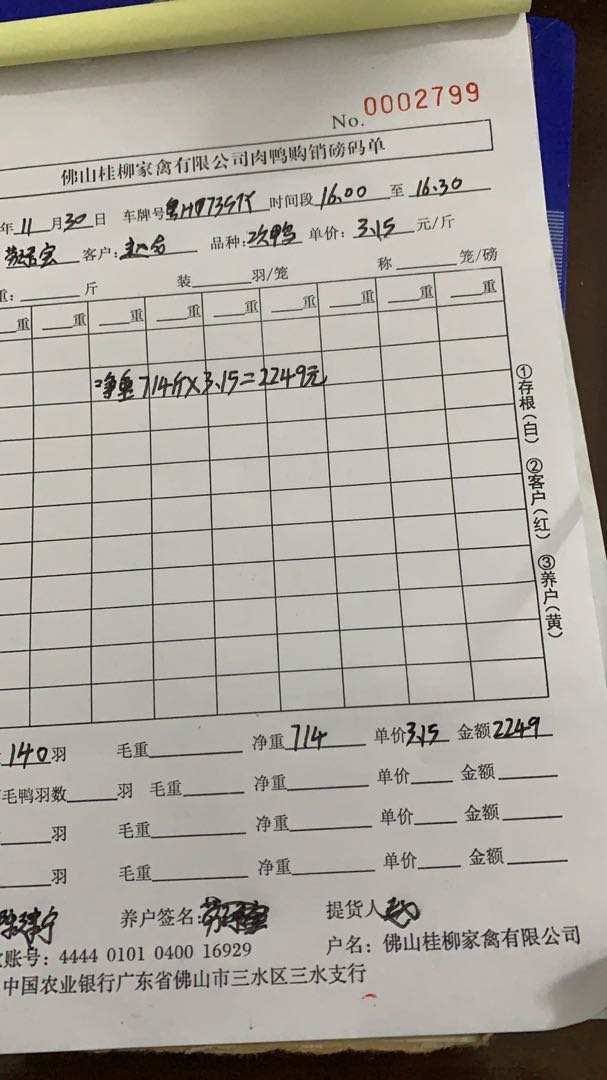 No. 0002799
佛山桂柳家禽有限公司肉鸭购销磅码单
年 11 月 30 日 车牌号 时间段 16.00 至 16.30
客户: 品种: 次鸭 单价: 3.15 元/斤
重: 斤 装 羽/笼 称 笼/磅
重 重 重 重 重 重 重 重 重
净重714斤×3.15=2249元
①存根(白) ②客户(红) ③养户(黄)
140 羽 毛重 净重 714 单价 3.15 金额 2249
毛鸭羽数 羽 毛重 净重 单价 金额
羽 毛重 净重 单价 金额
羽 毛重 净重 单价 金额
养户签名: 提货人
账号: 4444 0101 0400 16929 户名: 佛山桂柳家禽有限公司
中国农业银行广东省佛山市三水区三水支行